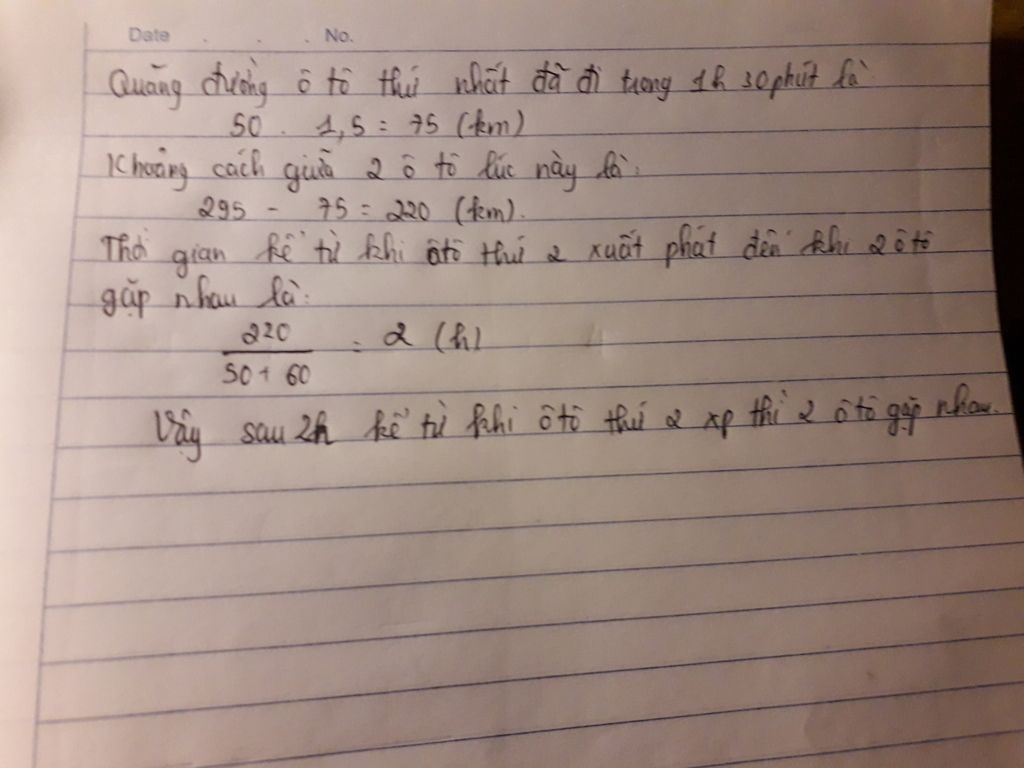 Date . . . No.
Quãng đường ô tô thứ nhất đã đi trong 1h 30 phút là
50 . 1,5 = 75 (km)
Khoảng cách giữa 2 ô tô lúc này là:
295 - 75 = 220 (km).
Thời gian kể từ khi ôtô thứ 2 xuất phát đến khi 2 ôtô
gặp nhau là:
220
50 + 60 = 2 (h)
Vậy sau 2h kể từ khi ôtô thứ 2 xp thì 2 ôtô gặp nhau.